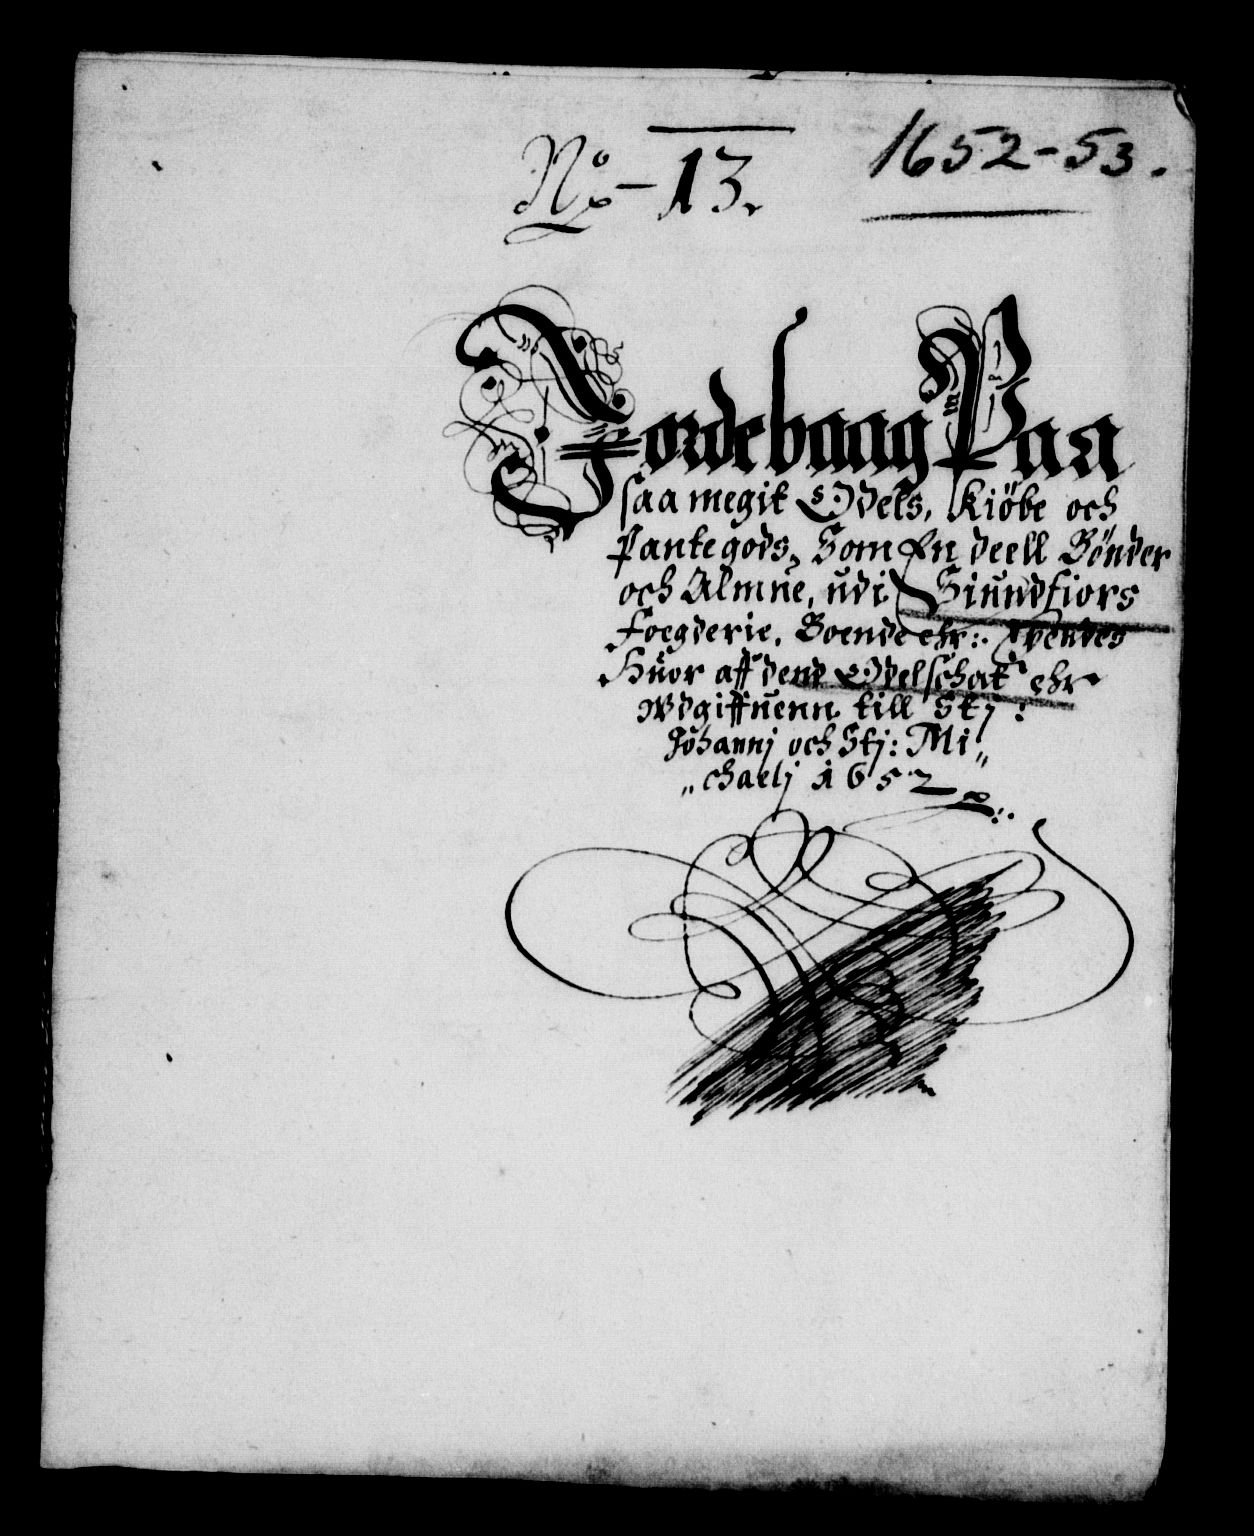 No 13.
1652-53.
Jordebaag Paa
saa megit Odels, Kiöbe och
Pantegods, Som En deell Bönder
och Almue, udi Siundfiors
Foegderie, Boende ehr:
Huor aff dend Odelschat ehr
wdgiffuenn till Stj:
Johannj och Stj: Mi„
„chaelj 1652